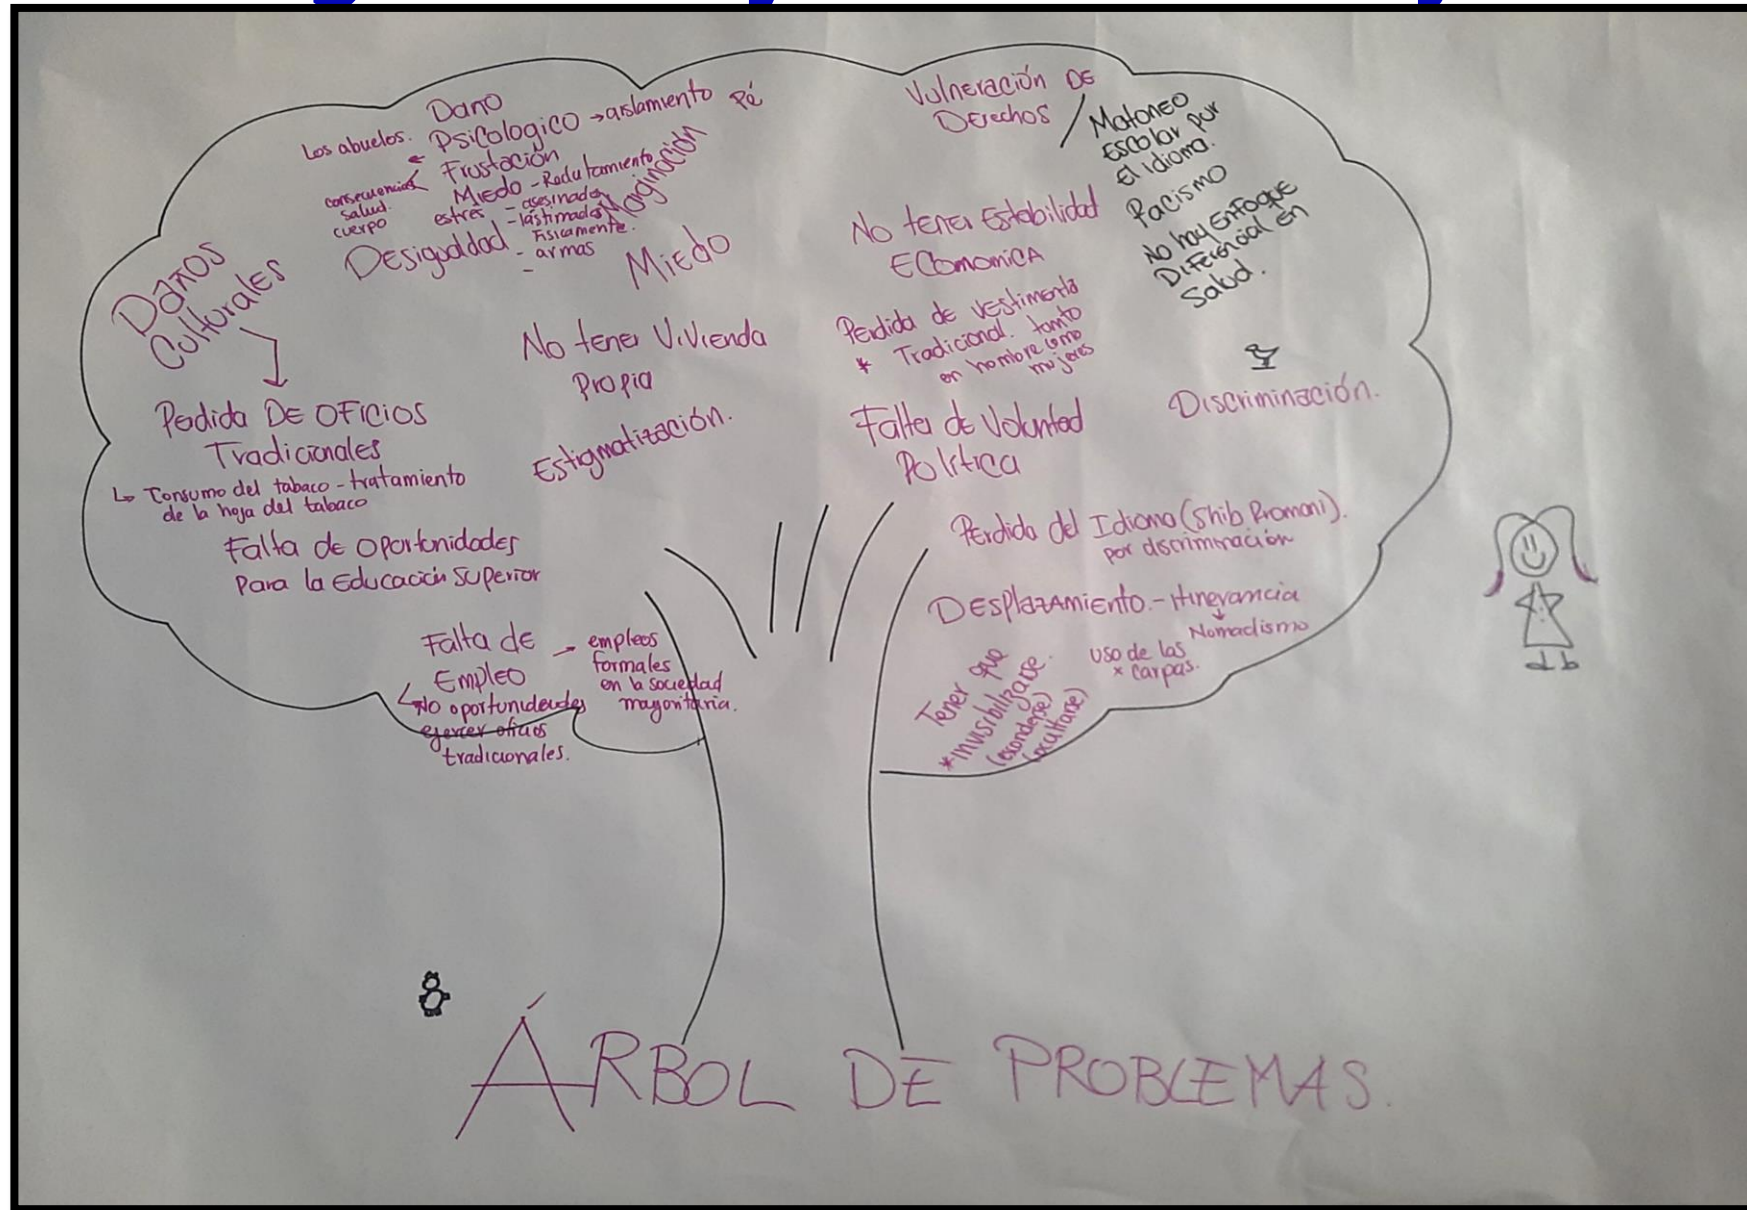 Daño
Los abuelos. Psicologico → aislamiento
Frustación
consecuencias
salud.
cuerpo
Miedo - Reclutamiento
estres - asesinados
- lastimados
Fisicamente.
- armas
-
Marginación
Desigualdad
Miedo
Daños
Culturales
Perdida DE OFicios
Tradicionales
↳ Consumo del tabaco - tratamiento
de la hoja del tabaco
Falta de oportunidades
Para la Educación Superior
No tener Vivienda
Propia
Estigmatización.
Falta de
Empleo
→ empleos
formales
en la sociedad
mayoritaria.
No oportunidades
ejercer oficios
tradicionales.
Vulneración DE
Derechos
Matoneo
Escolar por
El Idioma.
Racismo
No hay Enfoque
Diferencial en
Salud.
No tener Estabilidad
EComomicA
Perdida de vestimenta
* Tradicional. tanto
en hombre como
mujeres
Falta de Voluntad
Política
Discriminación.
Perdida del Idioma (Shib Rromani).
por discriminación
DesplazAmiento. - itinerancia
Nomadismo
uso de las
* carpas.
Tener que
* invisibilizarse.
(esconderse)
(ocultarse)
ÁRBOL DE PROBLEMAS.